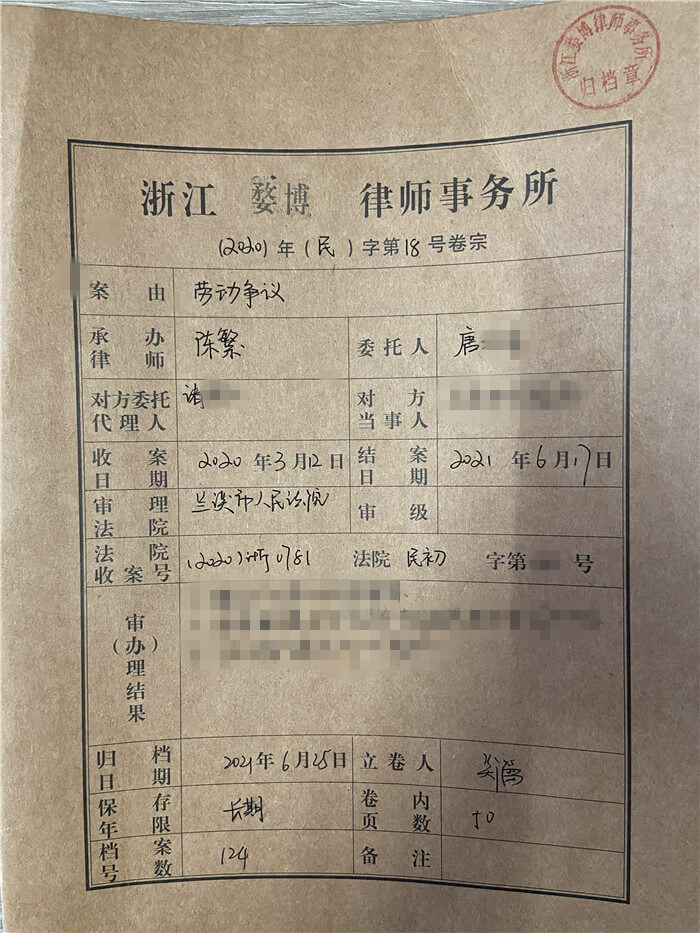 浙江婺博律师事务所
归档章
浙江 婺博 律师事务所
(2020)年(民)字第18号卷宗
案由 劳动争议
承办律师 陈繁 委托人 唐
对方委托代理人 对方当事人
收案日期 2020年3月12日 结案日期 2021年6月17日
审理法院 兰溪市人民法院 审级
法院收案号 (2020)浙0781 法院 民初 字第 号
审(办)理结果
归档日期 2021年6月25日 立卷人
保存年限 长期 卷内页数 50
档案号数 124 备注